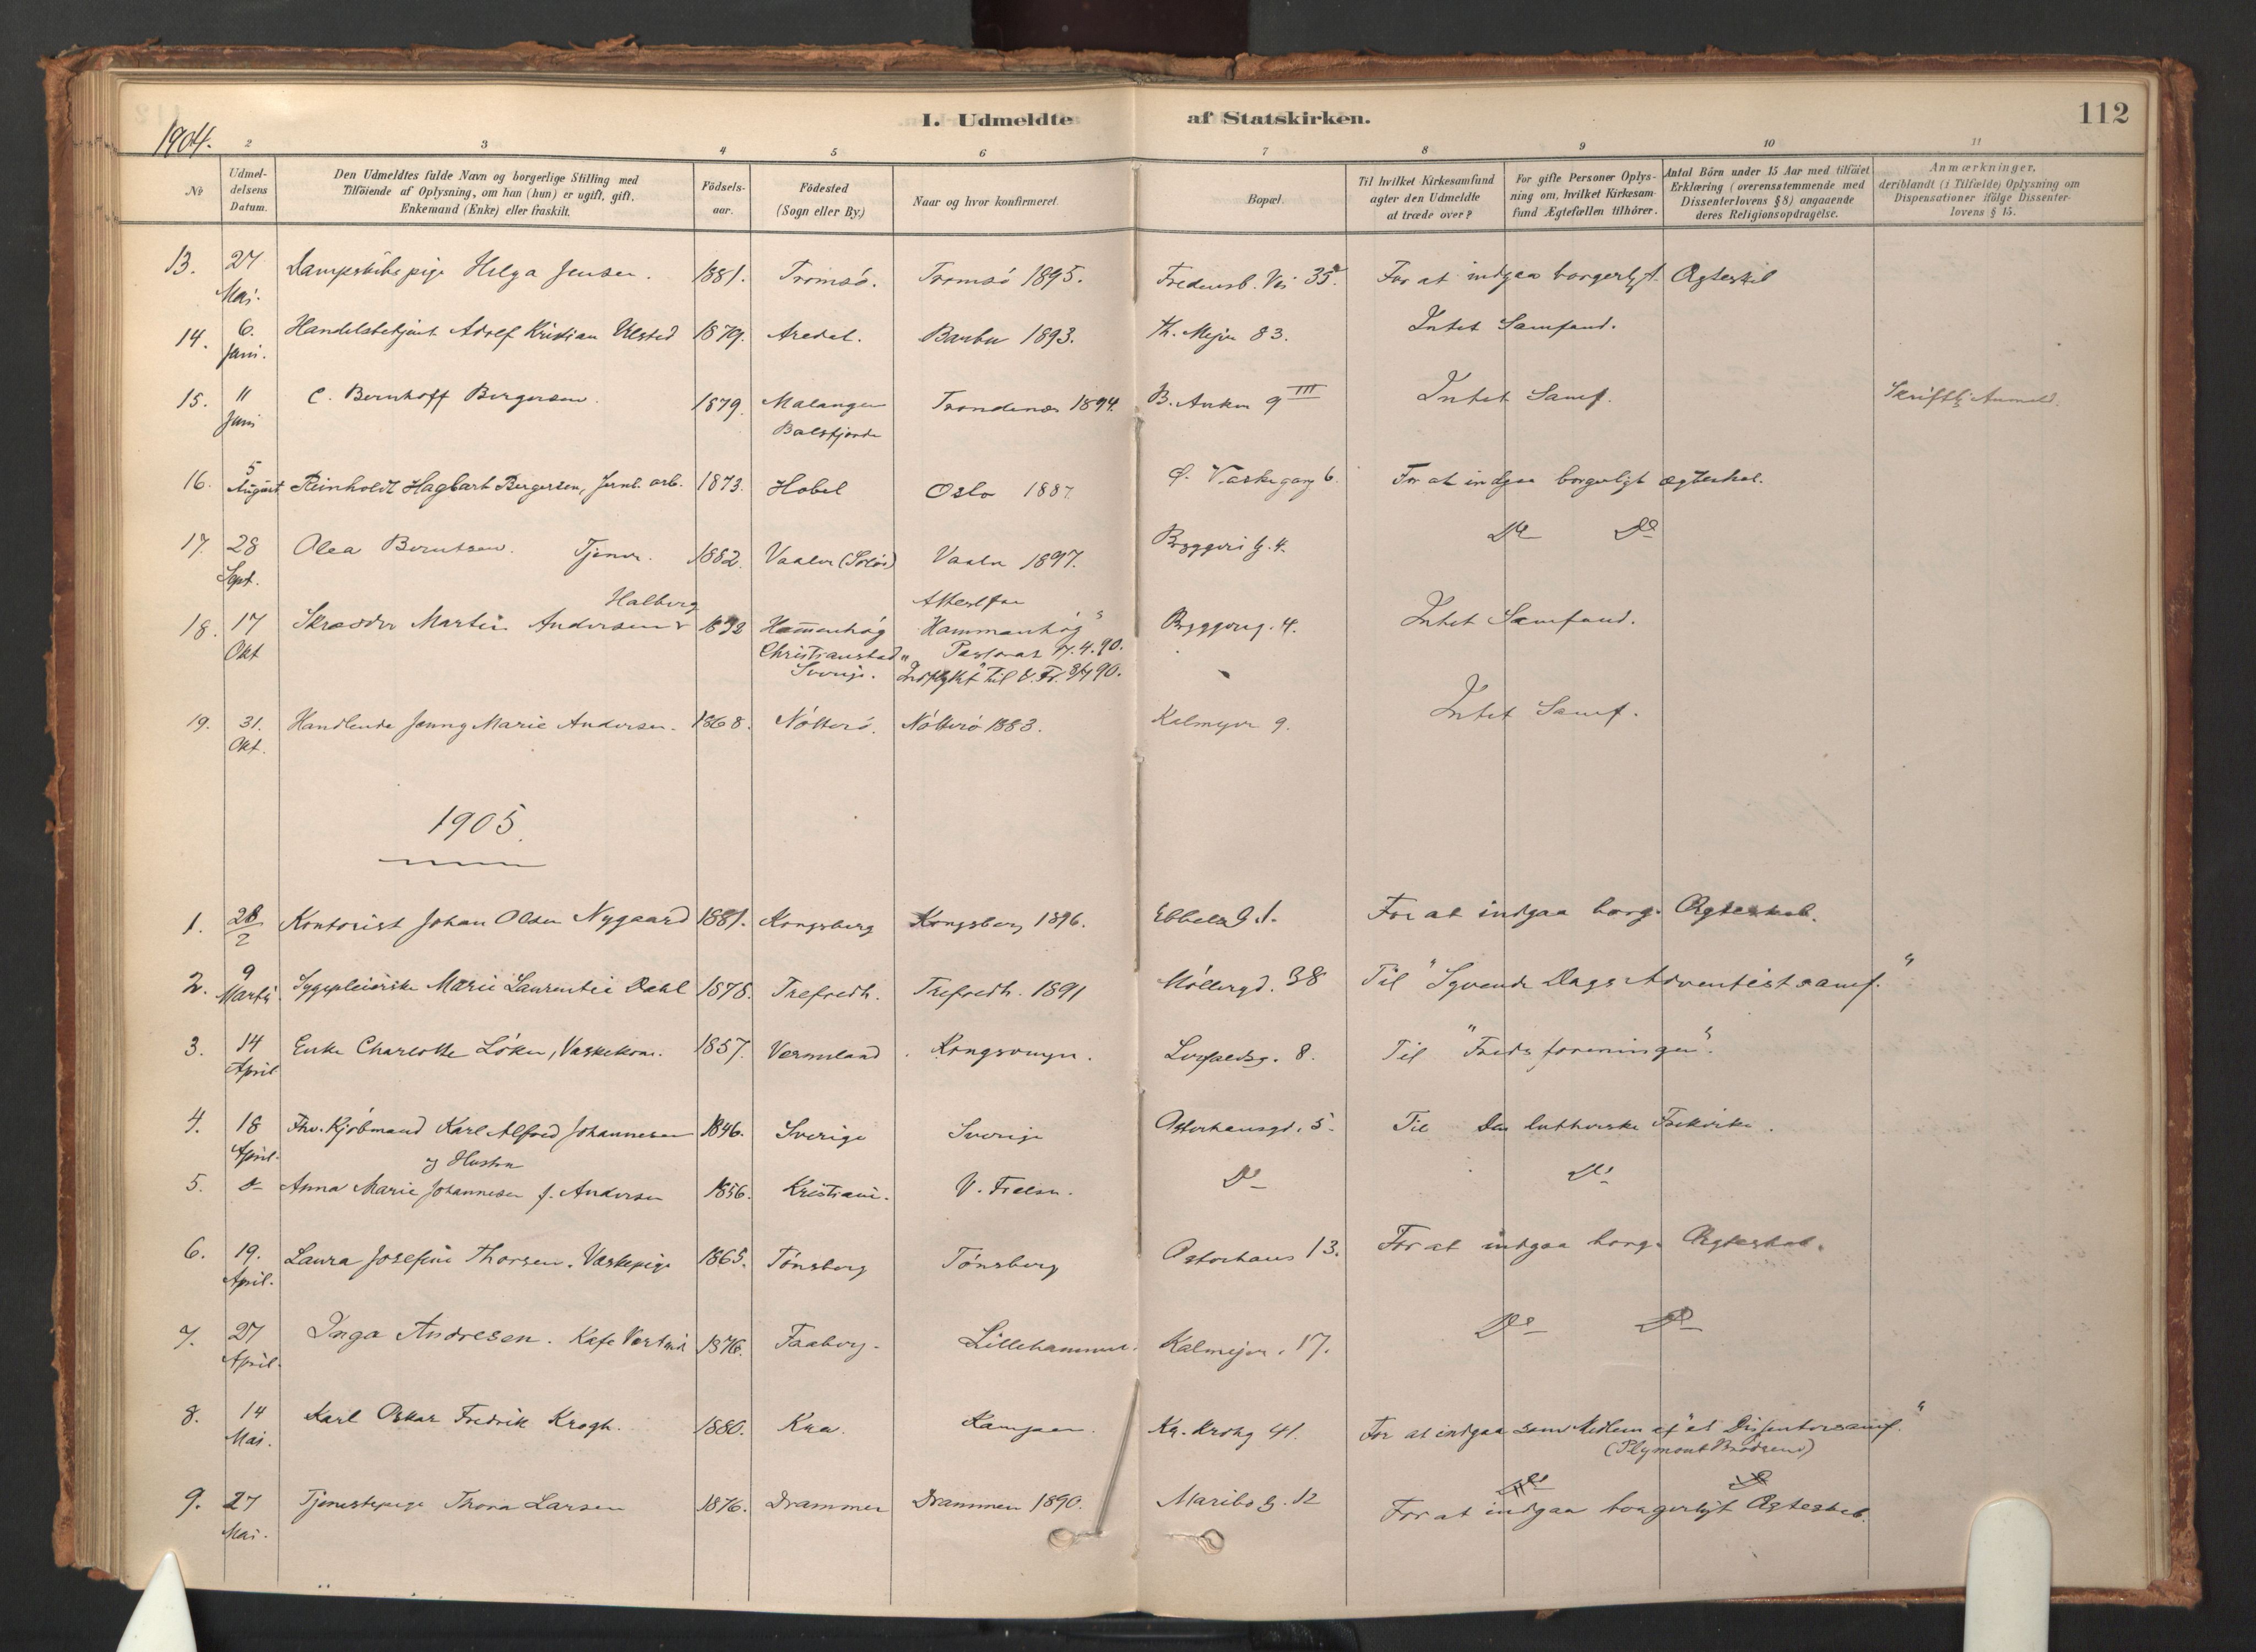 I. Udmeldte af Statskirken.
112
1904.
2 3 4 5 6 7 8 9 10 11
No
Udmeldelsens Datum.
Den Udmeldtes fulde Navn og borgerlige Stilling med
Tilföiende af Oplysning, om han (hun) er ugift, gift,
Enkemand (Enke) eller fraskilt.
Födselsaar.
Födested
(Sogn eller By.)
Naar og hvor konfirmeret.
Bopæl.
Til hvilket Kirkesamfund
agter den Udmeldte
at træde over?
For gifte Personer Oplysning om, hvilket Kirkesamfund Ægtefællen tilhörer.
Antal Börn under 15 Aar med tilföiet
Erklæring (overensstemmende med
Dissenterlovens § 8) angaaende
deres Religionsopdragelse.
Anmærkninger,
deriblandt (i Tilfælde) Oplysning om
Dispensationer ifölge Dissenterlovens § 15.
13. 27 Mai. Dampskibspige Helga Jensen. 1881. Tromsö. Tromsö 1895. Fredensb. Vei 35. For at indgaa borgerligt Ægteskab
14. 6. Juni. Handelsbetjent Adolf Kristian Ulsted 1879. Arendal. Barbu 1893. Th. Mejer 83. Intet Samfund.
15. 11 Juni C. Bernhoff Bergersen. 1879. Malangen Trondenæs 1894. B. Anker 9 III Intet Samf. Skriftlig Anmeld.
Balsfjorde
16. 5 August Reinholdt Hagbart Bergersen, Jernb. arb. 1873. Hobel Oslo 1887. Ø. Vaskegang 6. For at indgaa borgerligt ægteskab.
17. 28 Sept. Olea Berntsen. Tjener. 1882. Vaaler (Solör) Vaaler 1897. Bryggeri g. 4. Do Do
18. 17 Okt Skrædder Martin Andersen Halberg Hammenhög Attest fra "Hammenhög" Bryggerig. 4. Intet Samfund.
Christianstad Pastorat 17.4.90.
Sverige. "Indflyttet" til V. Fr. 90.
19. 31. Okt. Handlende Jenny Marie Andersen. 1868. Nötterö. Nötterö 1883. Kalmejer 9. Intet Samf.
1905.
1. 28/2 Kontorist Johan Olsen Nygaard 1881. Kongsberg Kongsberg 1896. Ebbels G. 1. For at indgaa borg. Ægteskab.
2. 9 Marts. Sygepleierske Marie Laurentie Dahl 1878. Fredrh. Fredrh. 1891 Möllergd. 38 Til "Syvende Dags Adventistsamf."
3. 14 April Enke Charlotte Löken, Vaskekone. 1857. Vermeland. Kongsvinger. 8. Til "Fredsforeningen".
4. 18 April. Fhv. Kjöbmand Karl Alfred Johannesen 1846. Sverige Sverige Osterhausgd. 5. Til Den lutherske Frikirke.
og Hustru
5. Do Anna Marie Johannesen f. Andersen 1856. Kristiania. V. Frelsr. Do Do
6. 19. April. Laura Josefine Thorsen. Vaskepige 1865. Tönsberg Tönsberg Osterhaus 13. For at indgaa borg. Ægteskab.
7. 27 April. Inga Andresen. Kafe Vertinde 1876. Faaberg. Lillehammer. Kalmejer. 17. Do Do
8. 14 Mai. Karl Oskar Fredrik Krogh. 1880. Kra. Kampen. Kr. Krohg 41. For at indgaa som Medlem af "et Dissentersamf."
(Plymout Brödrene)
9. 27 Mai. Tjenestepige Thora Larsen 1876. Drammen Drammen 1890. Maribo g. 12 For at indgaa borgerligt Ægteskab.